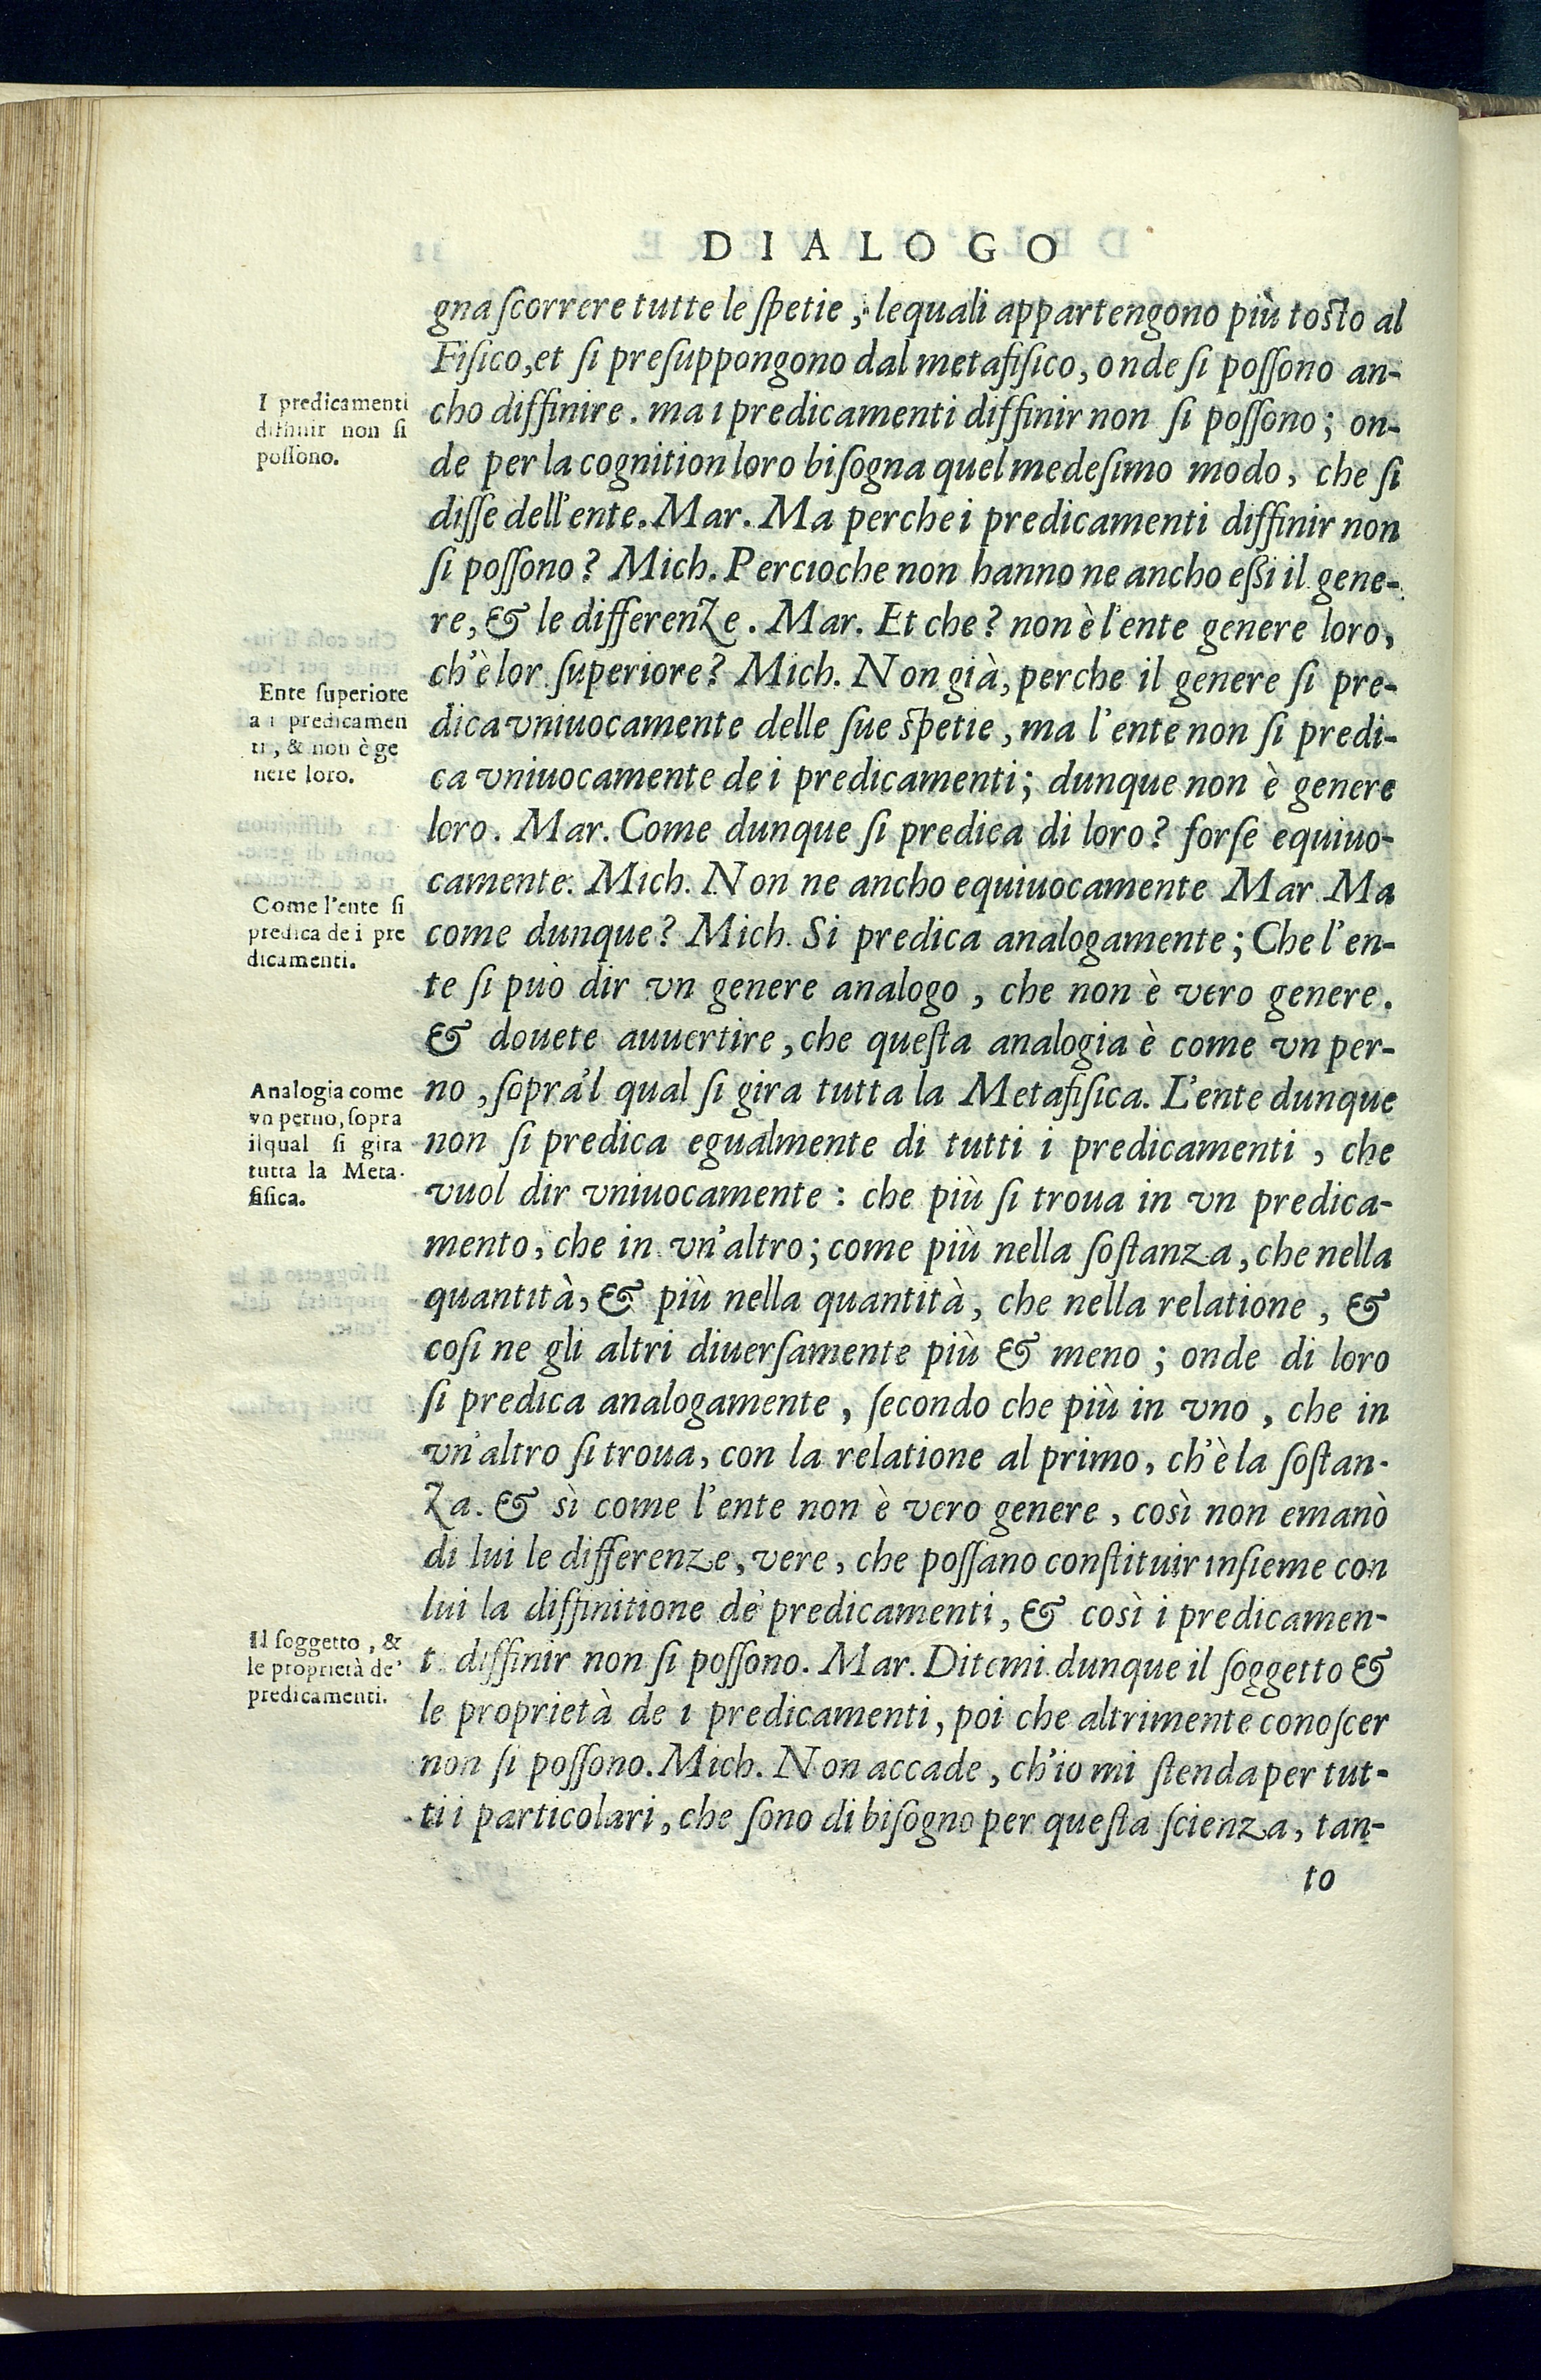 DIALOGO
gna ſcorrere tutte le ſpetie, lequali appartengono più toſto al
Fiſico, et ſi preſuppongono dal metafiſico, onde ſi poſſono an-
I predicamenti
diffinir non ſi
poſſono.
cho diffinire. ma i predicamenti diffinir non ſi poſſono; on-
de per la cognition loro biſogna quel medeſimo modo, che ſi
diſſe dell'ente. Mar. Ma perche i predicamenti diffinir non
ſi poſſono? Mich. Percioche non hanno ne ancho eſſi il gene-
re, & le differenze. Mar. Et che? non è l'ente genere loro,
ch'è lor ſuperiore? Mich. Non già, perche il genere ſi pre-
Ente ſuperiore
a i predicamen
ti, & non è ge
nere loro.
dica vniuocamente delle ſue ſpetie, ma l'ente non ſi predi-
ca vniuocamente de i predicamenti; dunque non è genere
loro. Mar. Come dunque ſi predica di loro? forſe equiuo-
camente. Mich. Non ne ancho equiuocamente Mar Ma
Come l'ente ſi
predica de i pre
dicamenti.
come dunque? Mich. Si predica analogamente; Che l'en-
te ſi può dir vn genere analogo, che non è vero genere.
& douete auuertire, che queſta analogia è come vn per-
Analogia come
vn perno, ſopra
ilqual ſi gira
tutta la Meta-
fiſica.
no, ſopra'l qual ſi gira tutta la Metafiſica. L'ente dunque
non ſi predica egualmente di tutti i predicamenti, che
vuol dir vniuocamente: che più ſi troua in vn predica-
mento, che in vn'altro; come più nella ſoſtanza, che nella
quantità, & più nella quantità, che nella relatione, &
coſi ne gli altri diuerſamente più & meno; onde di loro
ſi predica analogamente, ſecondo che più in vno, che in
vn'altro ſi troua, con la relatione al primo, ch'è la ſoſtan-
za. & sì come l'ente non è vero genere, così non emanò
di lui le differenze, vere, che poſſano conſtituir inſieme con
lui la diffinitione de' predicamenti, & così i predicamen-
Il ſoggetto, &
le proprietà de'
predicamenti.
t diffinir non ſi poſſono. Mar. Ditemi dunque il ſoggetto &
le proprietà de i predicamenti, poi che altrimente conoſcer
non ſi poſſono. Mich. Non accade, ch'io mi ſtenda per tut-
ti i particolari, che ſono di biſogno per queſta ſcienza, tan-
to